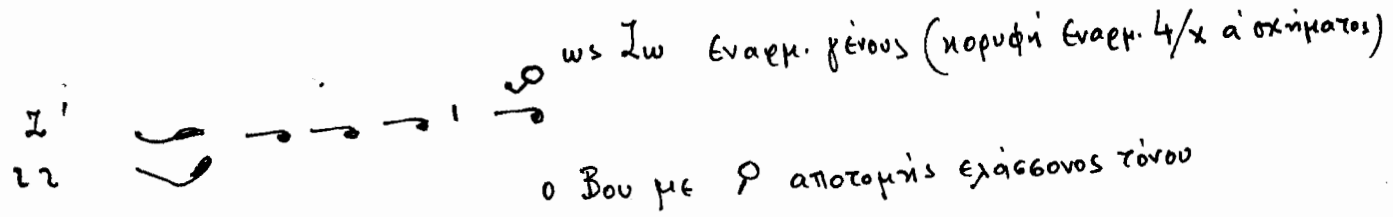 ως Ζω εναρμ. γένους (κορυφή εναρμ. 4/χ ά σχήματος)
Ζ'
ο Βου με ϙ αποτομής ελάσσονος τόνου